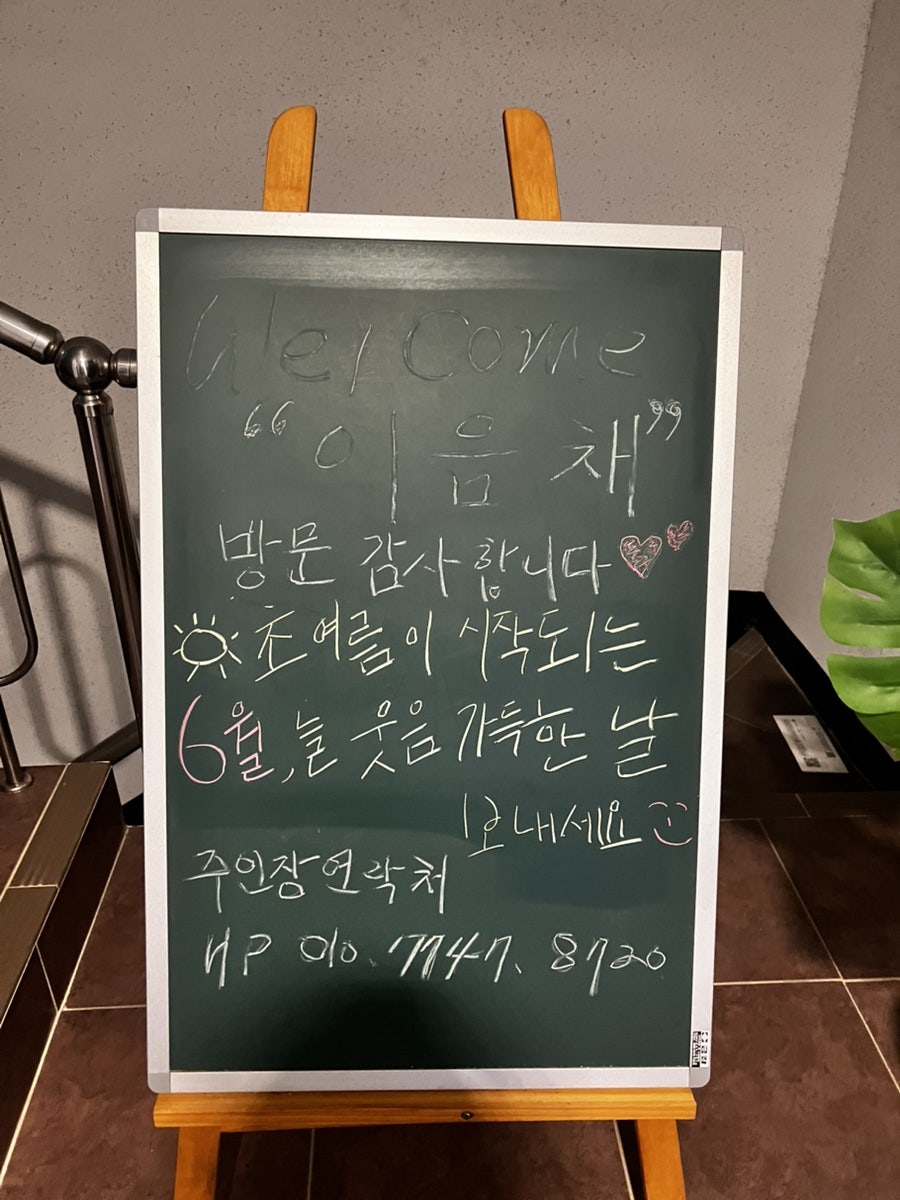 Welcome
“이음채”
방문 감사합니다
초여름이 시작되는
6월, 늘 웃음 가득한 날
보내세요
주인장 연락처
HP 010. 7747. 8720